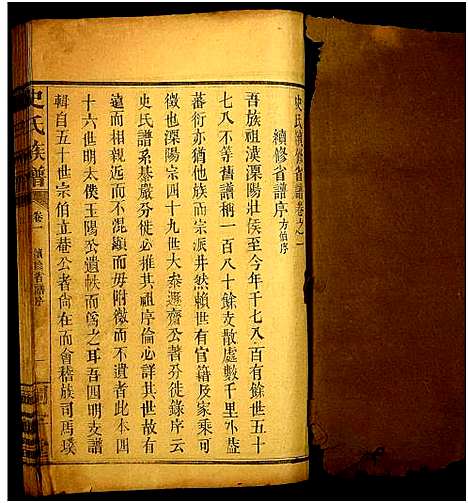 史氏續修省譜卷之一
續修省譜序 方伯序
吾族祖漢溧陽壯侯至今年千七八百有餘世五十
七八不等舊譜稱一百八十餘支散處數千里外蓋
蕃衍亦猶他族而宗派井然賴世有官籍及家乘可
徵也溧陽宗四十九世大參遜齋公著分徙錄序云
史氏譜系綦嚴分徙必推其祖序倫必詳其世故有
遠而相承不混顯而毋附微而不遺者此本四
十六世明太僕玉陽公遺帙而為之耳吾四明支譜
輯自五十世宗伯立菴公者尚在而會稽族司馬璞
史氏族譜
卷一
續修省譜序
一